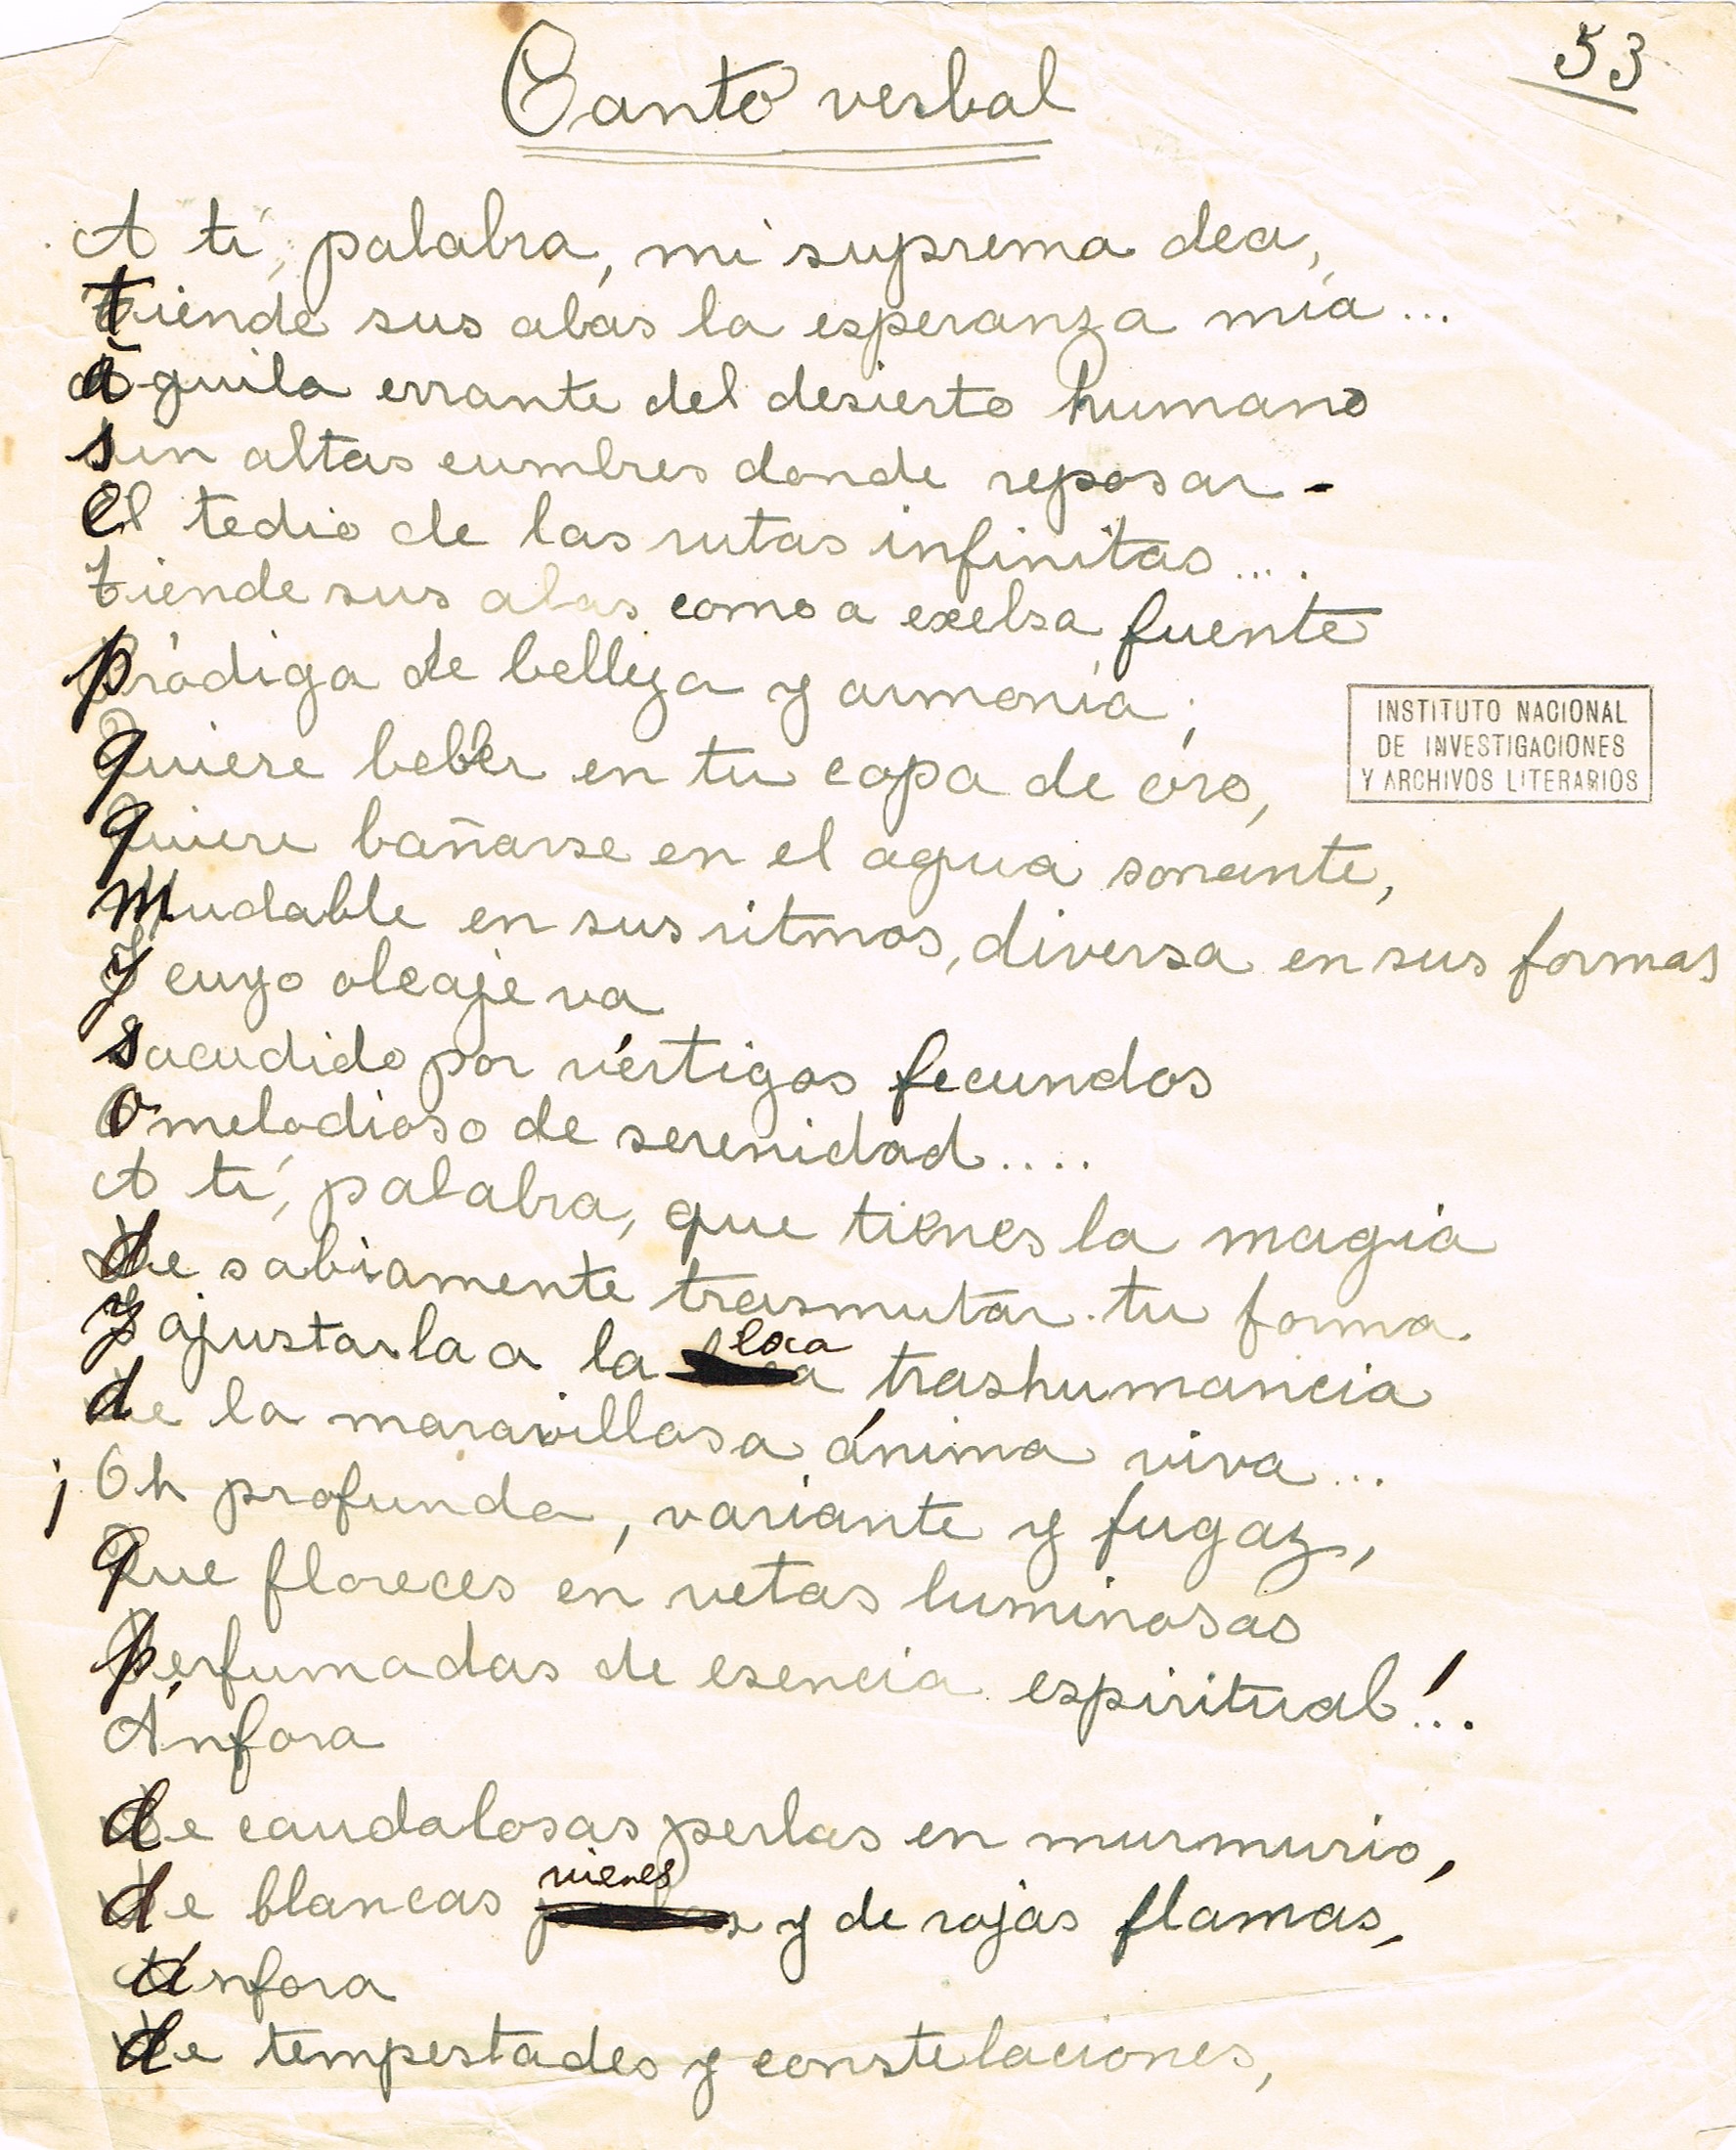 53
Canto verbal
A tí, palabra, mi suprema dea,
tiende sus alas la esperanza mía...
águila errante del desierto humano
sin altas cumbres donde reposar-
el tedio de las rutas infinitas....
tiende sus alas como a exelsa fuente
pródiga de belleza y armonía;
quiere beber en tu copa de oro,
quiere bañarse en el agua sonante,
mudable en sus ritmos, diversa en sus formas
y cuyo oleaje va
sacudido por vértigos fecundos
o melodioso de serenidad....
INSTITUTO NACIONAL
DE INVESTIGACIONES
Y ARCHIVOS LITERARIOS
A tí, palabra, que tienes la magia
de sabiamente trasmutar tu forma
y ajustarla a la loca trashumancia
de la maravillosa ánima viva...
¡Oh profunda, variante y fugaz,
que floreces en vetas luminosas
perfumadas de esencia espiritual!...
Ánfora
de caudalosas perlas en murmurio,
de blancas nieves y de rojas flamas,
ánfora
de tempestades y constelaciones,